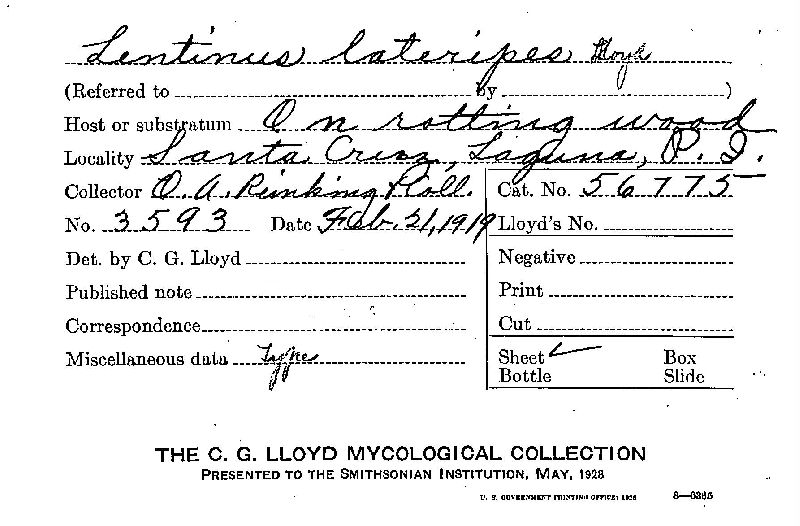 Lentinus lateripes Lloyd
(Referred to by )
Host or substratum On rotting wood
Locality Santa Cruz, Laguna, P. I.
Collector O. A. Reinking & Coll. Cat. No. 56775
No. 3593 Date Feb. 21, 1919 Lloyd's No.
Det. by C. G. Lloyd Negative
Published note Print
Correspondence Cut
Miscellaneous data Type Sheet ✓ Box
Bottle Slide
THE C. G. LLOYD MYCOLOGICAL COLLECTION
PRESENTED TO THE SMITHSONIAN INSTITUTION, MAY, 1928
U. S. GOVERNMENT PRINTING OFFICE: 1928 8—6385